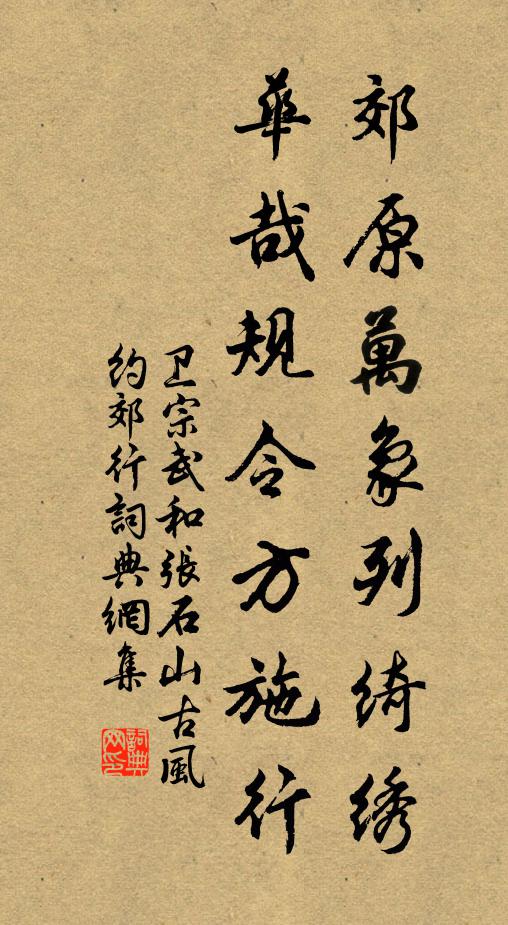 郊原萬象列綺绣
華哉規令方施行
卫宗武和張石山古風
約郊行詞典網集
詞典
网印